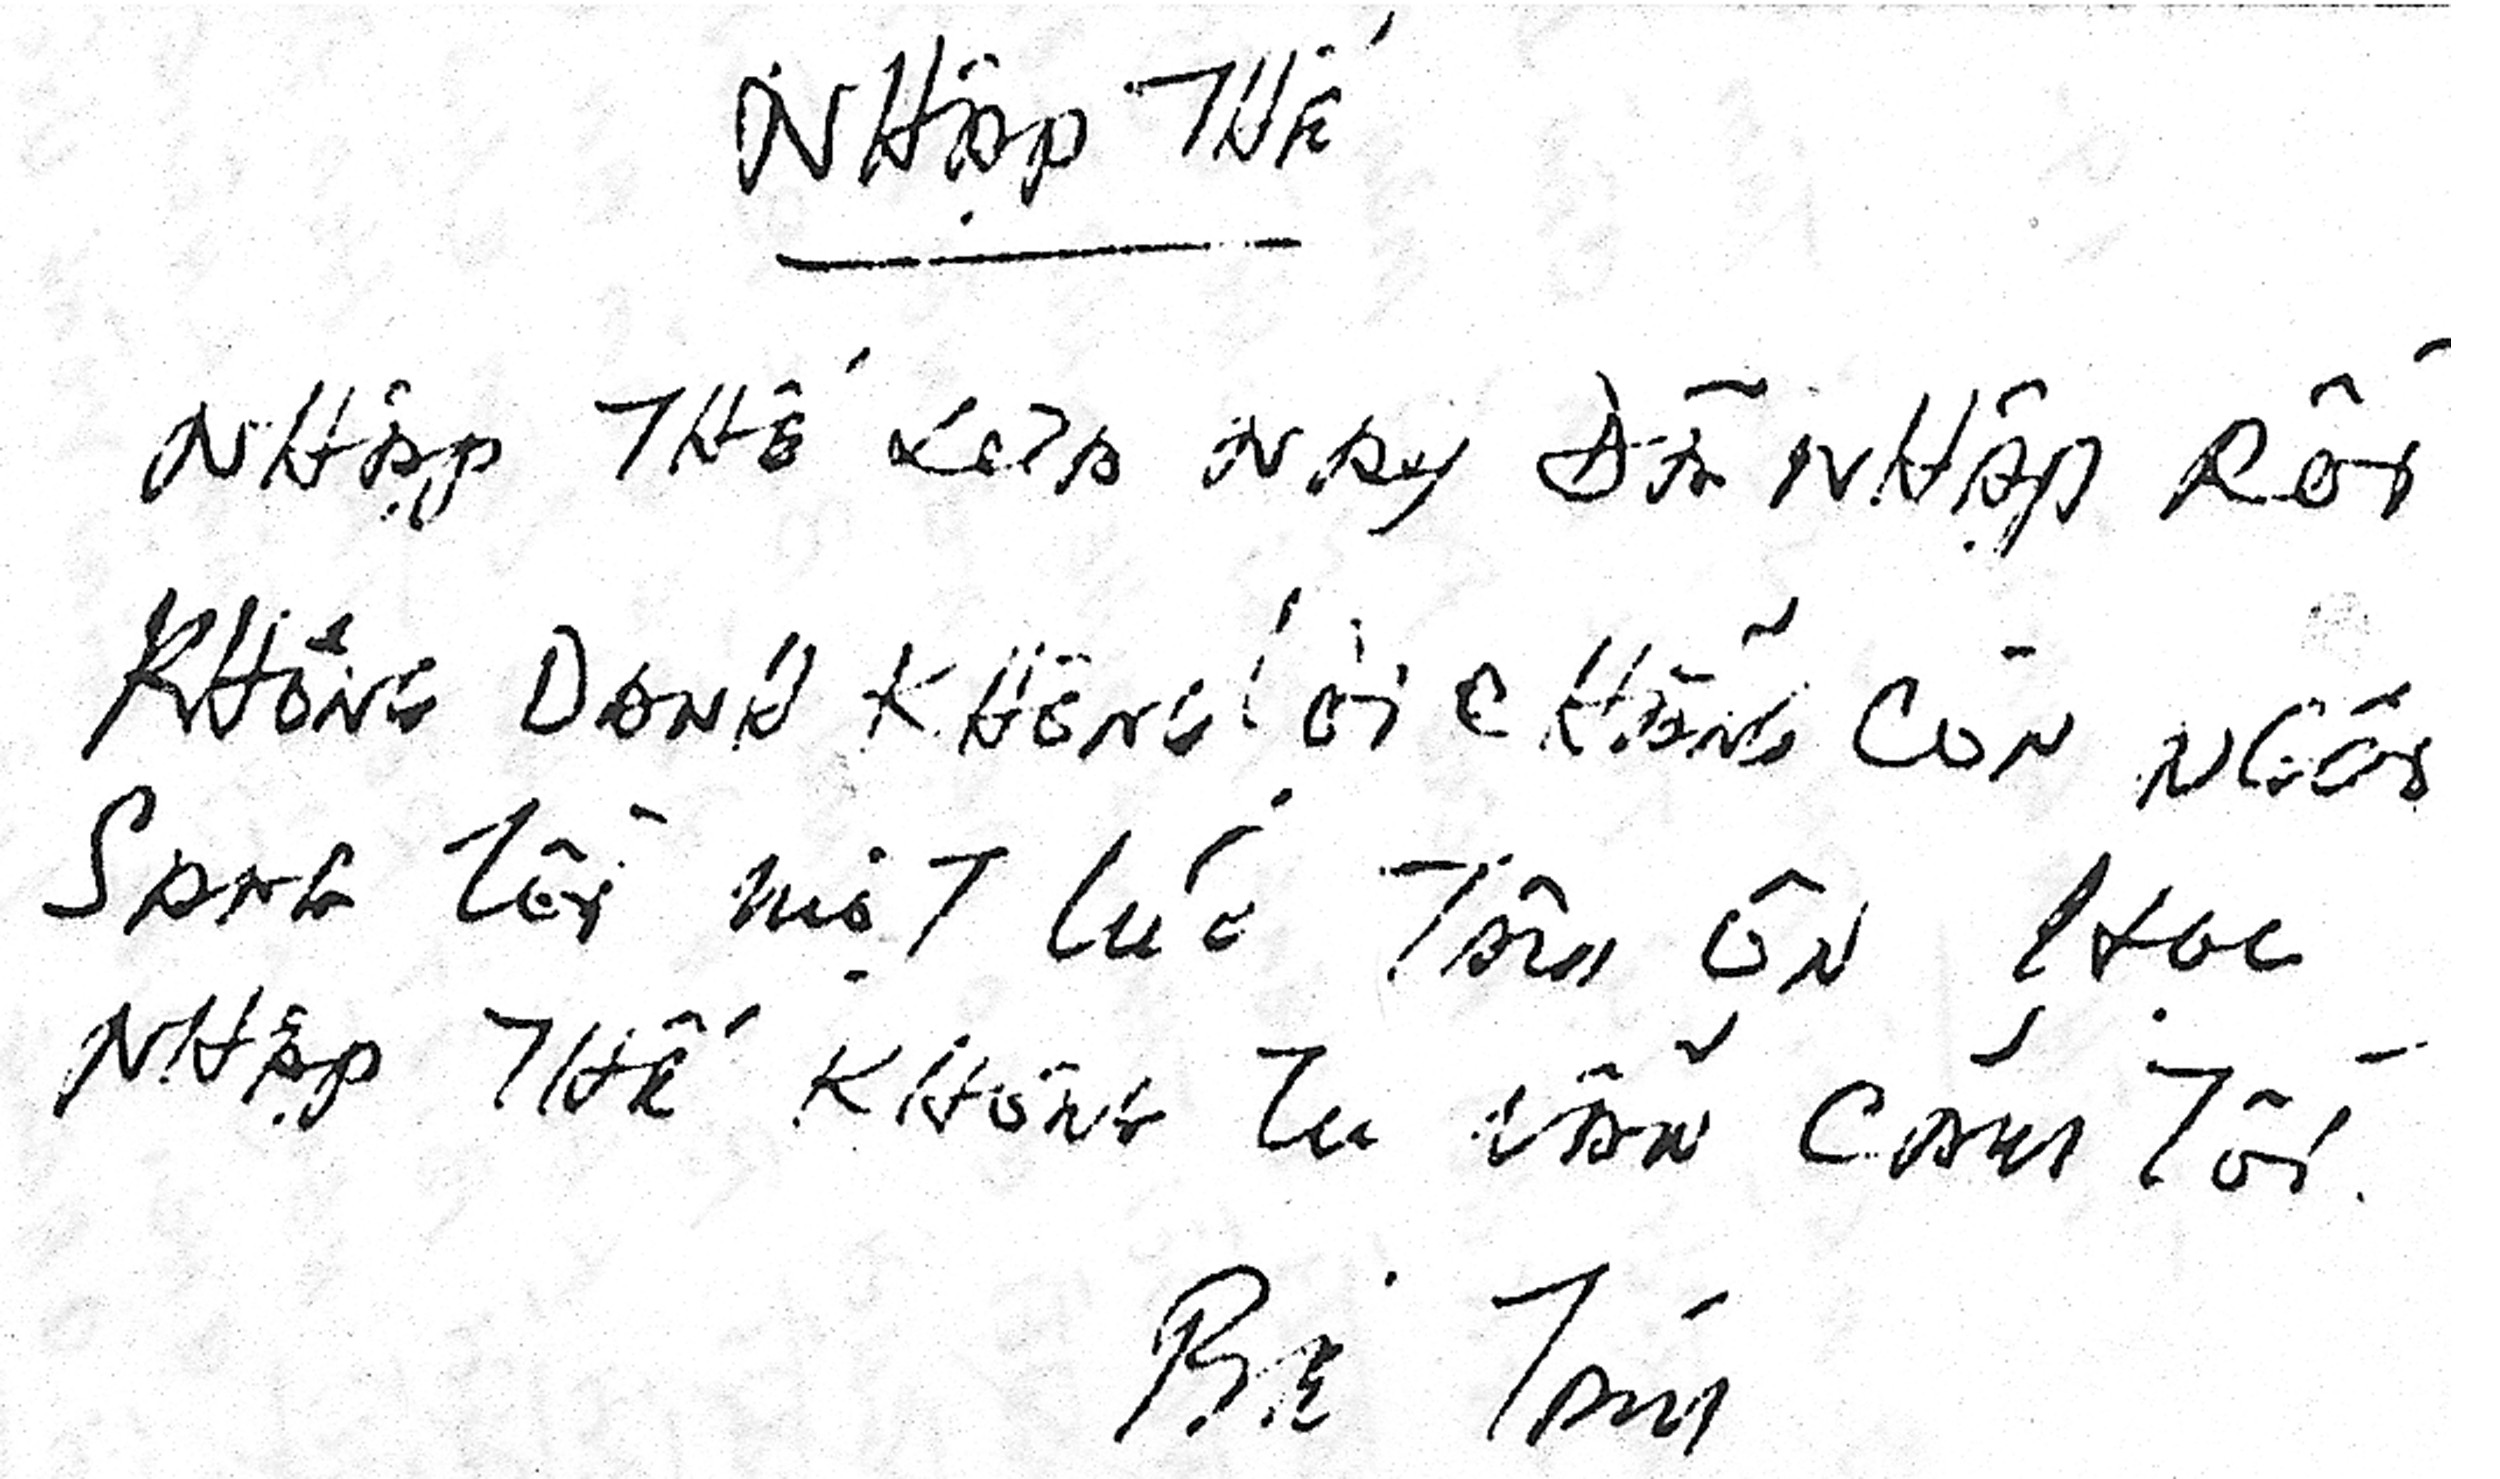 NHẬP THẾ
NHẬP THẾ LẦN NÀY ĐÃ NHẬP RỒI
KHÔNG DANH KHÔNG lợi CHẲNG CÒN NGÔI
SANG TỒI MỘT LÚC TÂM ÔN HỌC
NHẬP THẾ KHÔNG TU VẪN CÁM TỒI.
BÉ TÁM